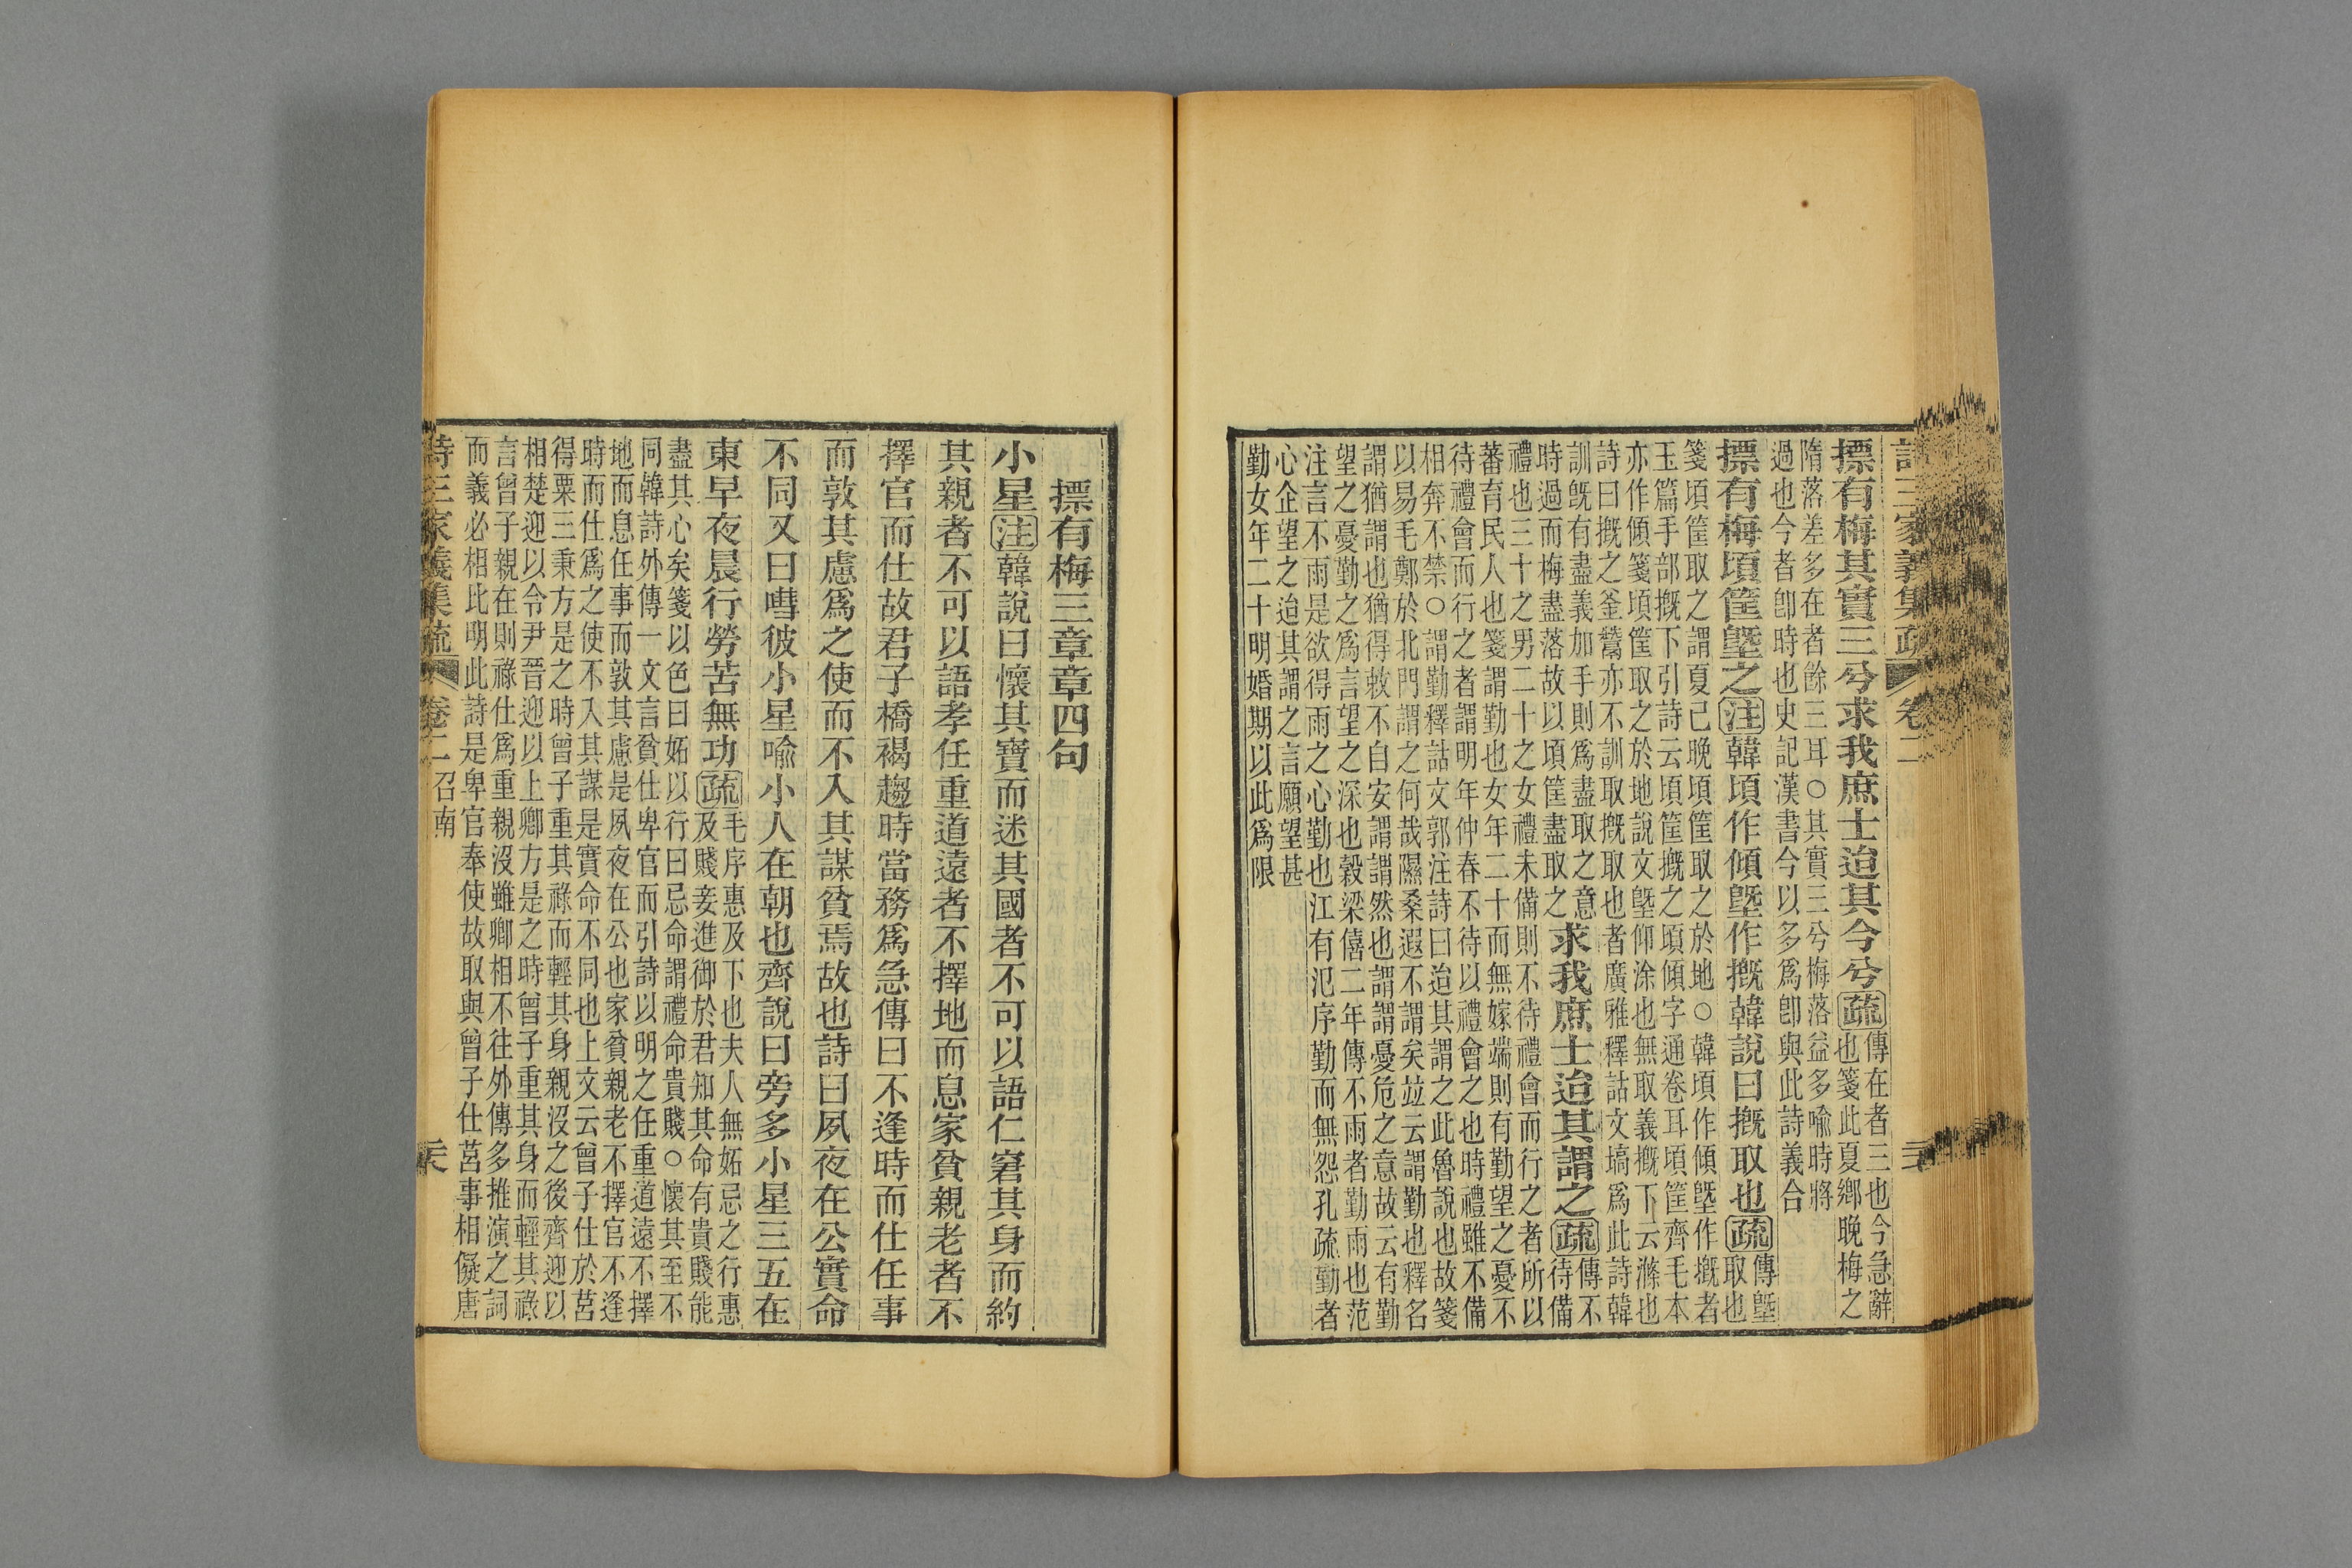 詩三家義集疏 卷二
摽有梅其實三兮求我庶士迨其今兮疏傳在者三也今急辭
也箋此夏鄉晚梅之
隋落差多在者餘三耳○其實三兮梅落益多喻時將
過也今者卽時也史記漢書今以多爲卽與此詩義合
摽有梅頃筐塈之注韓頃作傾塈作摡韓說曰摡取也疏傳塈
取也
箋頃筐取之謂夏已晚頃筐取之於地○韓頃作傾塈作摡者
玉篇手部摡下引詩云頃筐摡之頃傾字通卷耳頃筐齊毛本
亦作傾箋頃筐取之於地說文塈仰涂也無取義摡下云滌也
詩曰摡之釜鬵亦不訓取摡取也者廣雅釋詁文塙爲此詩韓
訓旣有盡義加手則爲盡取之意求我庶士迨其謂之疏傳不
待備
時過而梅盡落故以頃筐盡取之
禮也三十之男二十之女禮未備則不待禮會而行之者所以
蕃育民人也箋謂勤也女年二十而無嫁端則有勤望之憂不
待禮會而行之者謂明年仲春不待以禮會之也時禮雖不備
相奔不禁○謂勤釋詁文郭注詩曰迨其謂之此魯說也故箋
以易毛鄭於北門謂之何哉隰桑遐不謂矣竝云謂勤也釋名
謂猶謂也猶得敕不自安謂謂然也謂謂憂危之意故云有勤
望之憂勤之爲言望之深也穀梁僖二年傳不雨者勤雨也范
注言不雨是欲得雨之心勤也江有氾序勤而無怨孔疏勤者
心企望之迨其謂之言願望甚
勤女年二十明婚期以此爲限
摽有梅三章章四句
小星注韓說曰懷其寶而迷其國者不可以語仁窘其身而約
其親者不可以語孝任重道遠者不擇地而息家貧親老者不
擇官而仕故君子橋褐趨時當務爲急傳曰不逢時而仕任事
而敦其慮爲之使而不入其謀貧焉故也詩曰夙夜在公實命
不同又曰嘒彼小星喻小人在朝也齊說曰旁多小星三五在
東早夜晨行勞苦無功疏毛序惠及下也夫人無妬忌之行惠
及賤妾進御於君知其命有貴賤能
盡其心矣箋以色曰妬以行曰忌命謂禮命貴賤○懷其至不
同韓詩外傳一文言貧仕卑官而引詩以明之任重道遠不擇
地而息任事而敦其慮是夙夜在公也家貧親老不擇官不逢
時而仕爲之使不入其謀是實命不同也上文云曾子仕於莒
得粟三秉方是之時曾子重其祿而輕其身親沒之後齊迎以
相楚迎以令尹晉迎以上卿方是之時曾子重其身而輕其祿
言曾子親在則祿仕爲重親沒雖卿相不往外傳多推演之詞
而義必相比明此詩是卑官奉使故取與曾子仕莒事相儗唐
詩三家義集疏 卷二召南